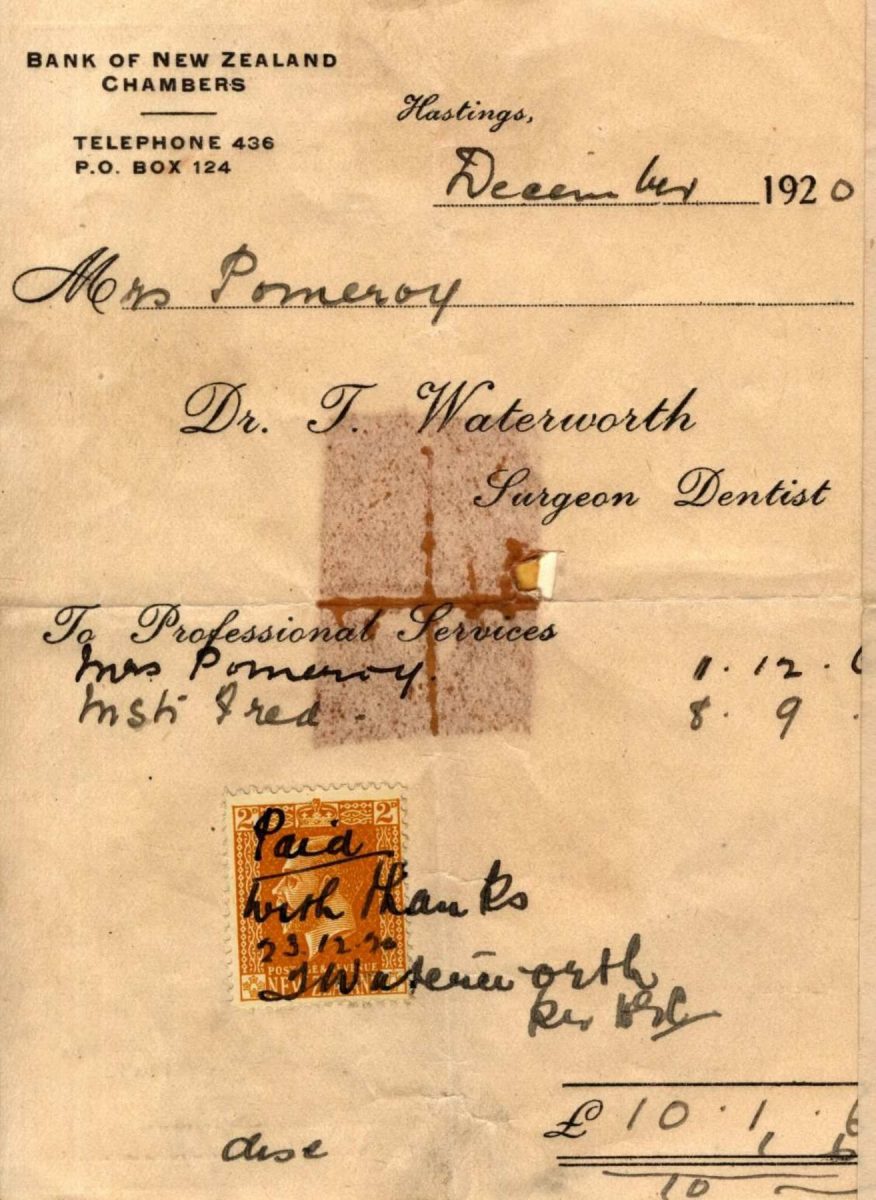 BANK OF NEW ZEALAND
CHAMBERS
TELEPHONE 436
P.O. BOX 124
Hastings,
December 1920
Mrs Pomeroy
Dr. T. Waterworth
Surgeon Dentist
To Professional Services
Mrs Pomeroy. 1. 12. 6
Mstr Fred - 8. 9.
2D 2D
Paid
with thanks
23.12.20
POSTAGE & REVENUE
NEW ZEALAND
T Waterworth
per
£ 10. 1. 6
disc 1
10